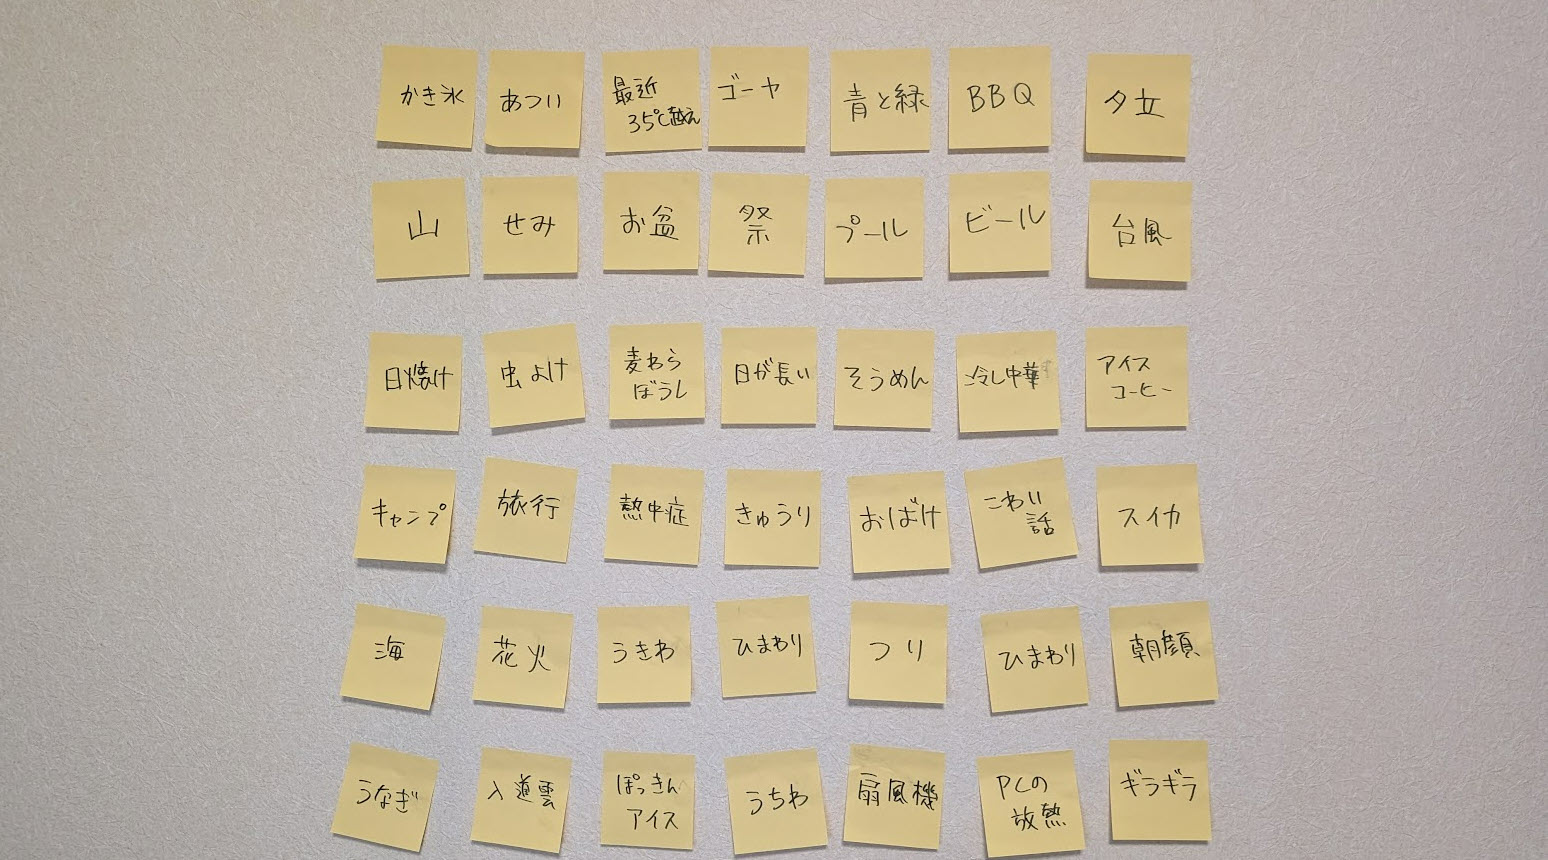 かき氷
あつい
最近
35℃越え
ゴーヤ
青と緑
BBQ
夕立
山
せみ
お盆
祭
プール
ビール
台風
日焼け
虫よけ
麦わら
ぼうし
日が長い
そうめん
冷し中華
アイス
コーヒー
キャンプ
旅行
熱中症
きゅうり
おばけ
こわい
話
スイカ
海
花火
うきわ
ひまわり
つり
ひまわり
朝顔
うなぎ
入道雲
ぽっきん
アイス
うちわ
扇風機
PCの
放熱
ギラギラ